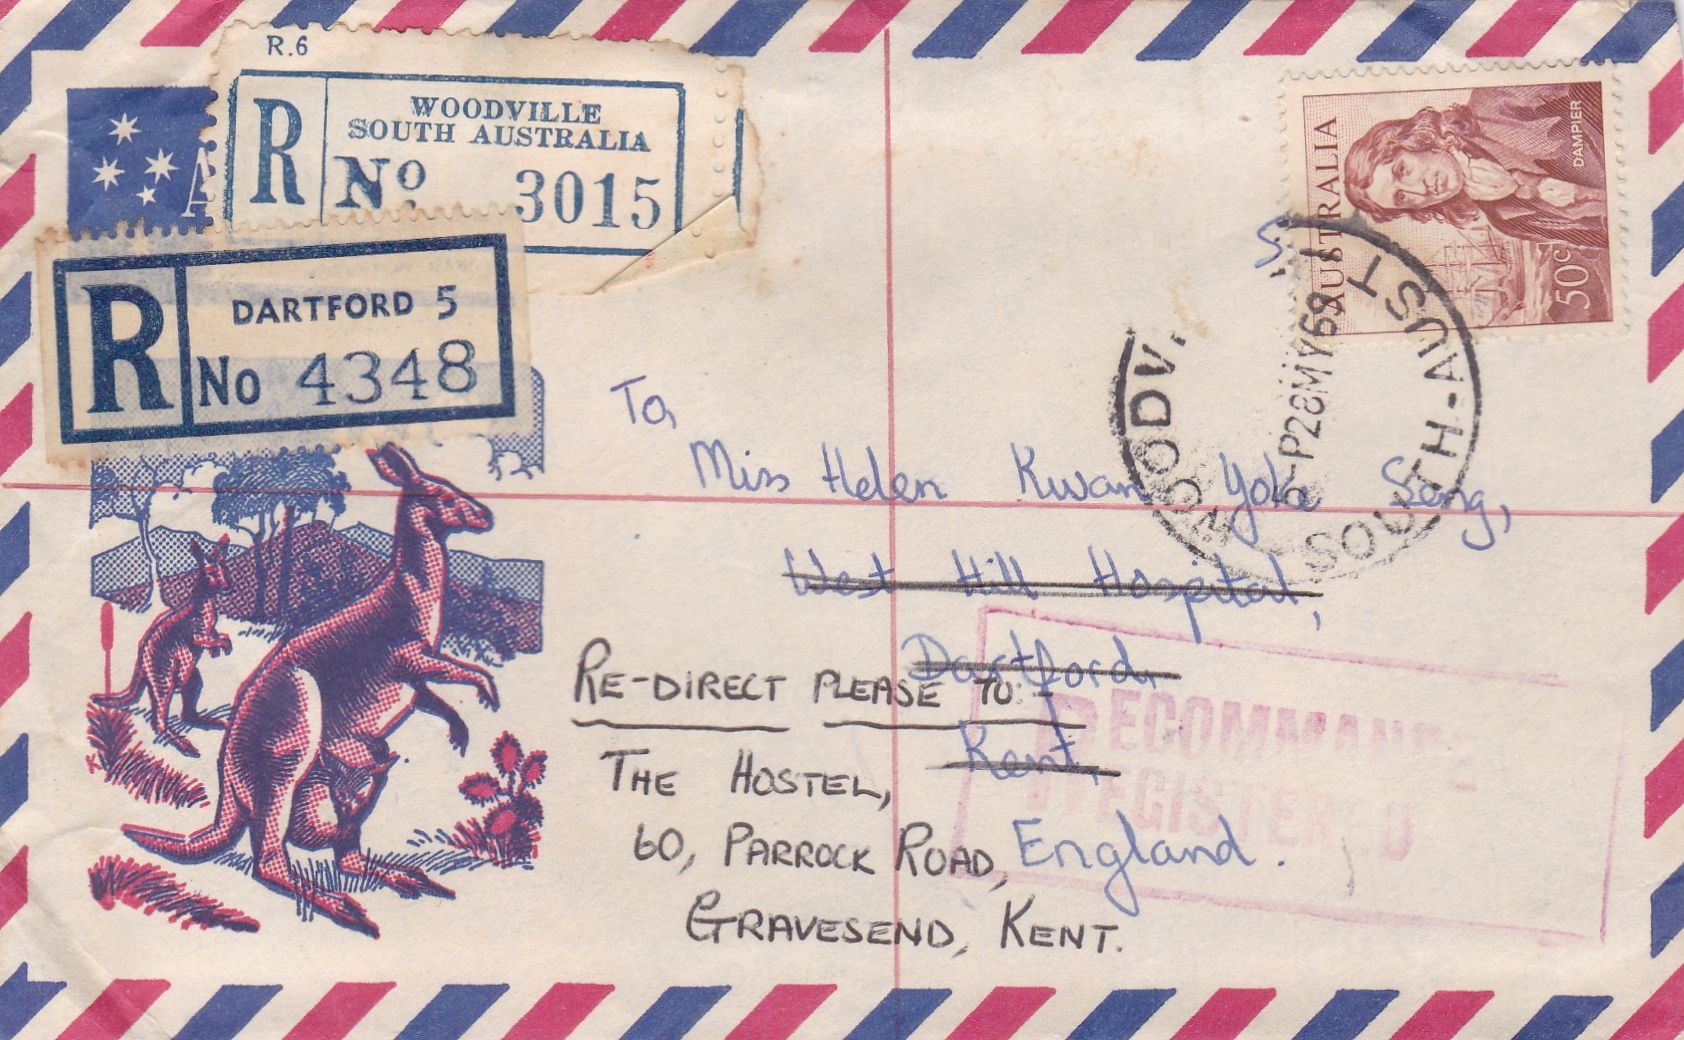 R.6
R
WOODVILLE
SOUTH AUSTRALIA
No 3015
A
R
DARTFORD 5
No 4348
AUSTRALIA
DAMPIER
50c
WOODV
SOUTH-AUST
5-P28MY68
To,
Miss Helen Kwan Yoke Seng,
West Hill Hospital,
Dartford,
Kent,
England.
RE-DIRECT PLEASE TO:-
THE HOSTEL,
60, PARROCK ROAD,
GRAVESEND, KENT.
RECOMMANDE
REGISTERED